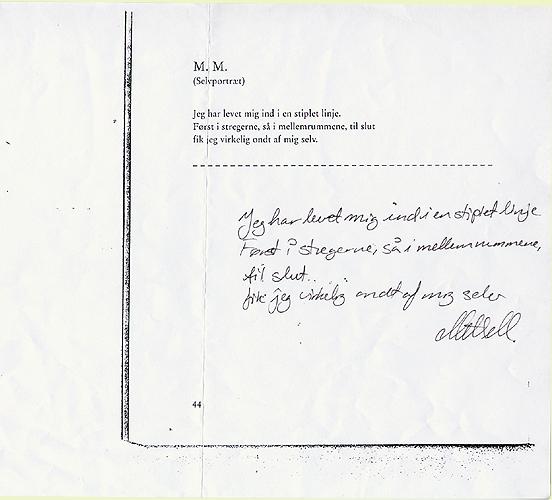 M. M.
(Selvportræt)
Jeg har levet mig ind i en stiplet linje.
Først i stregerne, så i mellemrummene, til slut
fik jeg virkelig ondt af mig selv.
Jeg har levet mig ind i en stiplet linje
Først i stregerne, så i mellemrummene,
til slut..
fik jeg virkelig ondt af mig selv
44